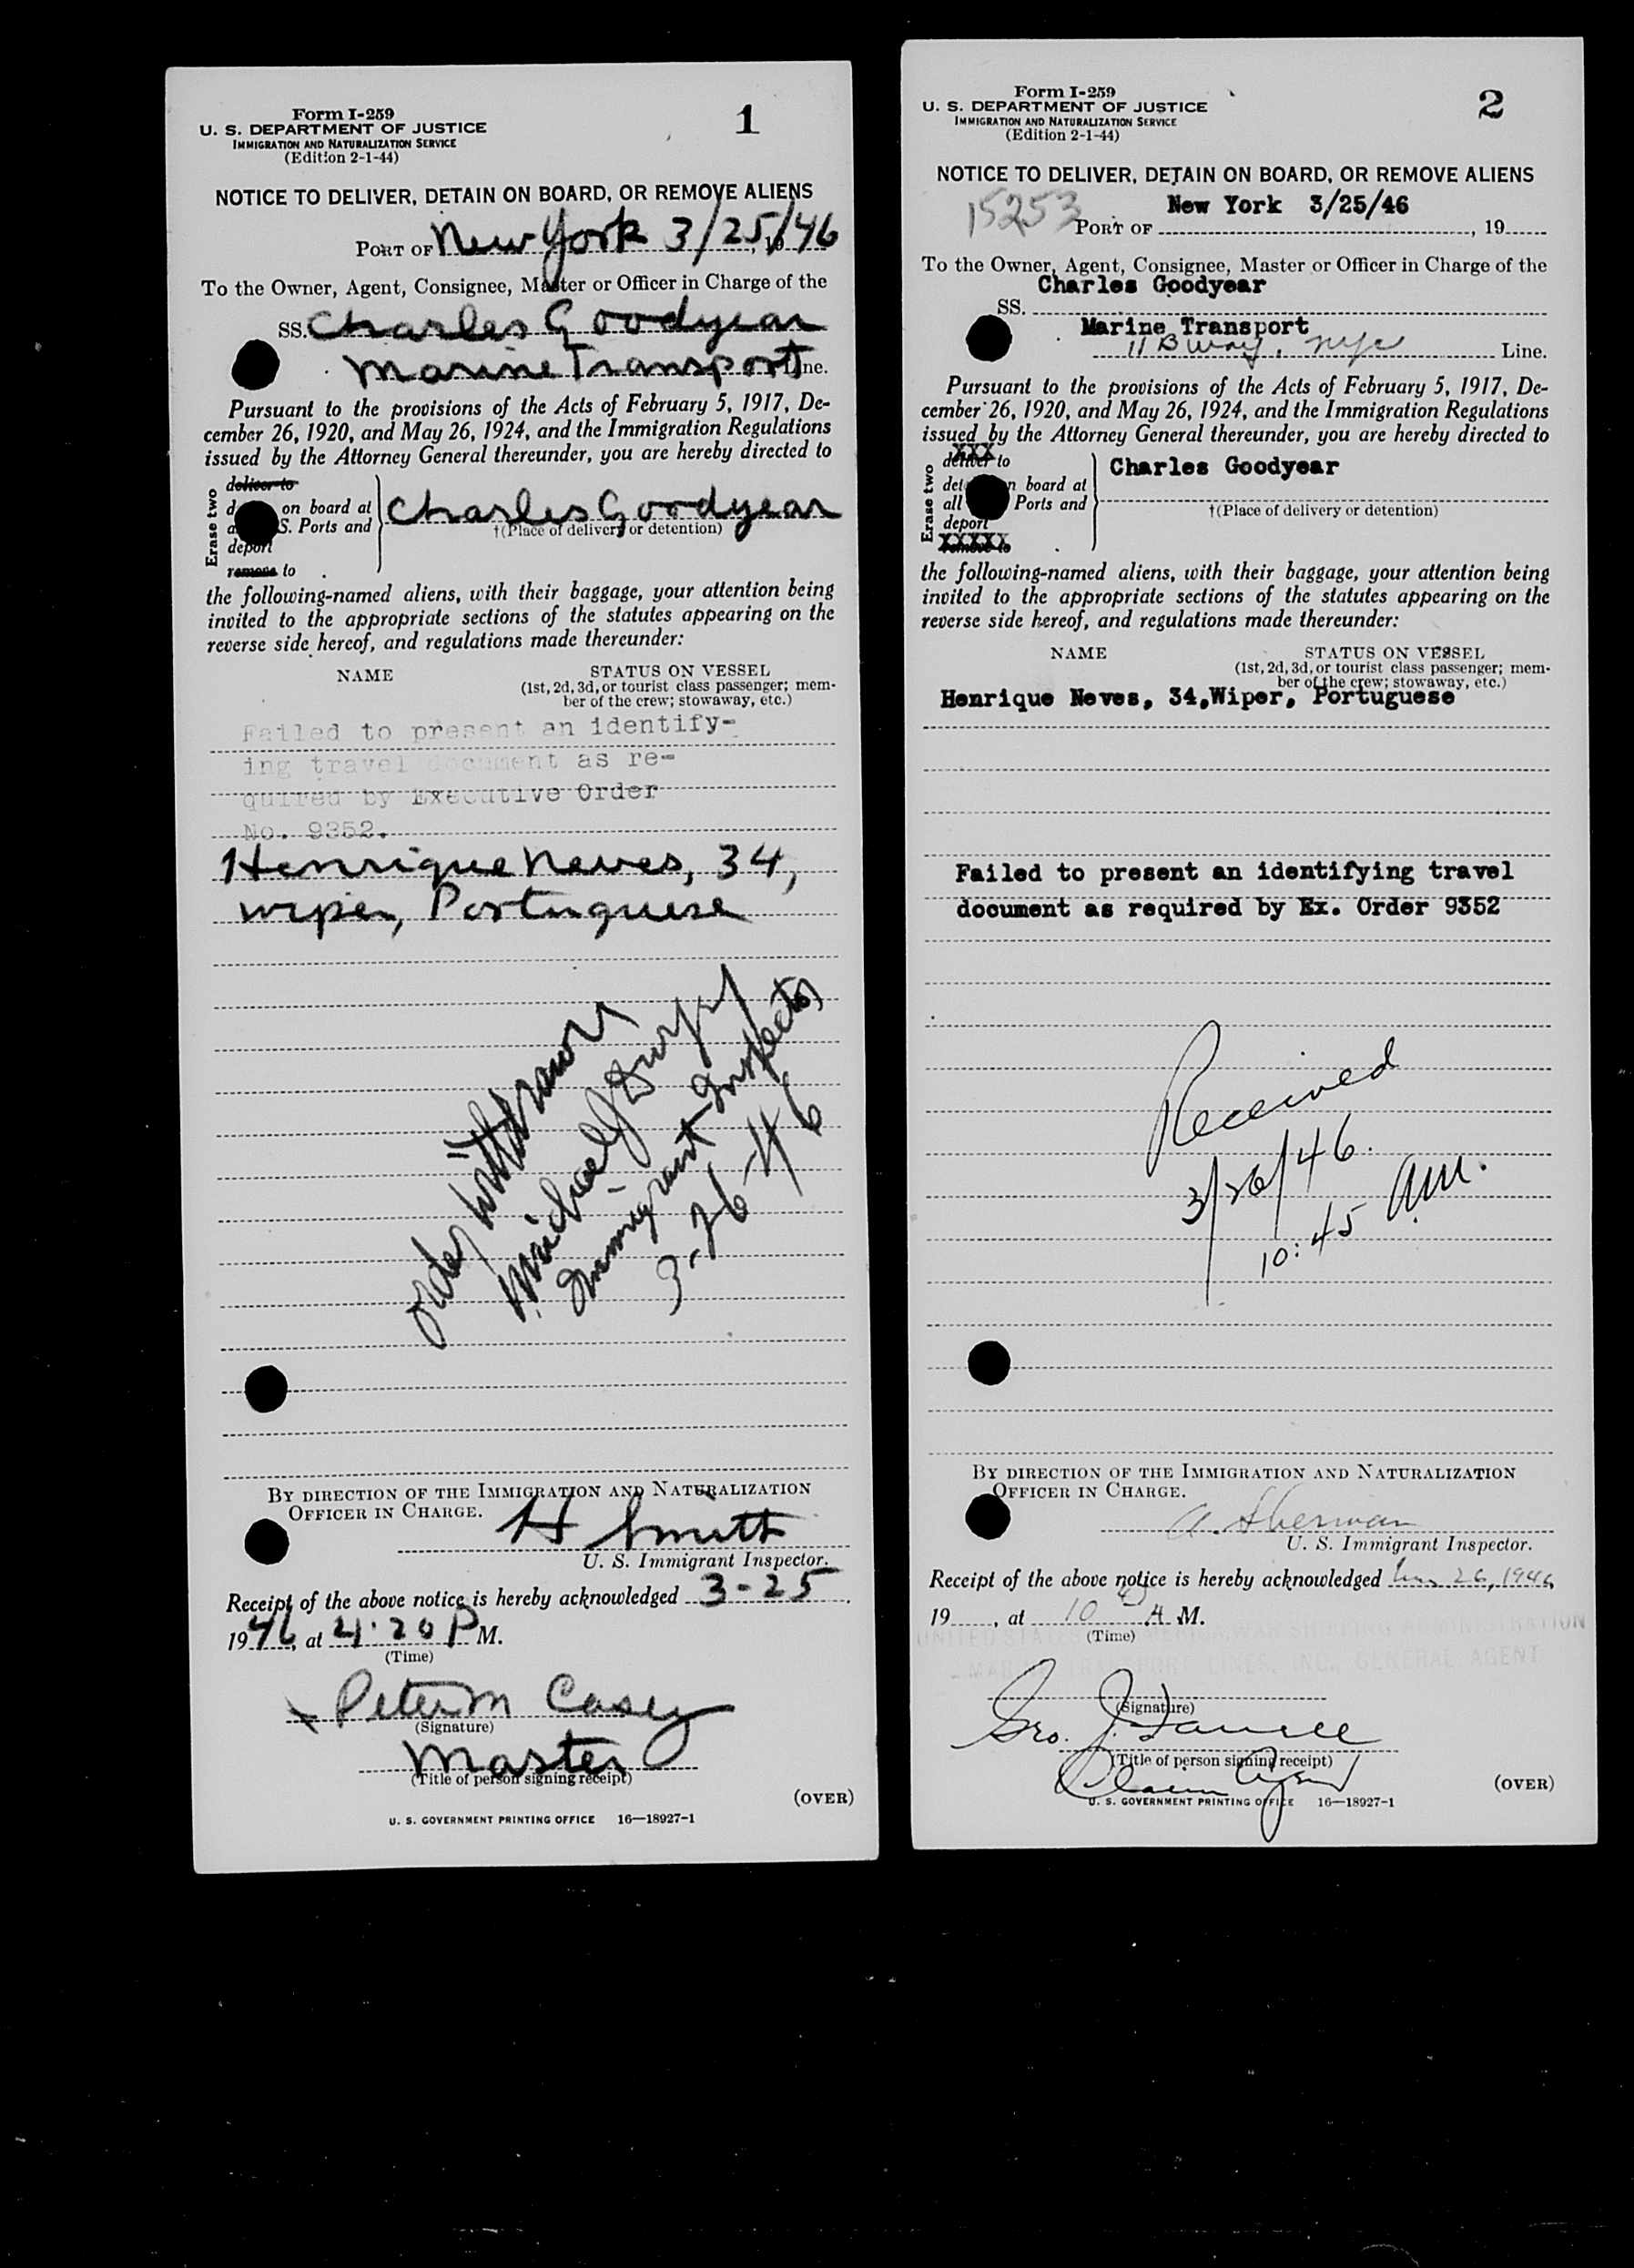 Form I-259
U. S. DEPARTMENT OF JUSTICE
IMMIGRATION AND NATURALIZATION SERVICE
(Edition 2-1-44)
1
NOTICE TO DELIVER, DETAIN ON BOARD, OR REMOVE ALIENS
PORT OF New York 3/25/46
To the Owner, Agent, Consignee, Master or Officer in Charge of the
SS. Charles Goodyear
Marine Transport Line.
Pursuant to the provisions of the Acts of February 5, 1917, De-
cember 26, 1920, and May 26, 1924, and the Immigration Regulations
issued by the Attorney General thereunder, you are hereby directed to
Erase two
deliver to
on board at
S. Ports and
deport
remove to
Charles Goodyear
†(Place of delivery or detention)
the following-named aliens, with their baggage, your attention being
invited to the appropriate sections of the statutes appearing on the
reverse side hereof, and regulations made thereunder:
NAME
STATUS ON VESSEL
(1st, 2d, 3d, or tourist class passenger; mem-
ber of the crew; stowaway, etc.)
Failed to present an identify-
ing travel document as re-
quired by Executive Order
No. 9352.
Henrique Neves, 34,
wiper, Portuguese
order withdrawn
Michael J
Immigrant Inspector
3-26-46
BY DIRECTION OF THE IMMIGRATION AND NATURALIZATION
OFFICER IN CHARGE.
H Smith
U. S. Immigrant Inspector.
Receipt of the above notice is hereby acknowledged 3-25
1946, at 4:20 P M.
(Time)
x Peter M Casey
(Signature)
Master
(Title of person signing receipt)
(OVER)
U. S. GOVERNMENT PRINTING OFFICE 16—18927-1
Form I-259
U. S. DEPARTMENT OF JUSTICE
IMMIGRATION AND NATURALIZATION SERVICE
(Edition 2-1-44)
2
NOTICE TO DELIVER, DETAIN ON BOARD, OR REMOVE ALIENS
15253
New York 3/25/46
PORT OF , 19
To the Owner, Agent, Consignee, Master or Officer in Charge of the
Charles Goodyear
SS.
Marine Transport
11 Bway, nyc Line.
Pursuant to the provisions of the Acts of February 5, 1917, De-
cember 26, 1920, and May 26, 1924, and the Immigration Regulations
issued by the Attorney General thereunder, you are hereby directed to
Erase two
XXX
deliver to
n board at
all Ports and
deport
XXXXX
remove to
Charles Goodyear
†(Place of delivery or detention)
the following-named aliens, with their baggage, your attention being
invited to the appropriate sections of the statutes appearing on the
reverse side hereof, and regulations made thereunder:
NAME
STATUS ON VESSEL
(1st, 2d, 3d, or tourist class passenger; mem-
ber of the crew; stowaway, etc.)
Henrique Neves, 34,Wiper, Portuguese
Failed to present an identifying travel
document as required by Ex. Order 9352
Received
3/26/46.
10:45 am.
BY DIRECTION OF THE IMMIGRATION AND NATURALIZATION
OFFICER IN CHARGE.
A. Sherman
U. S. Immigrant Inspector.
Receipt of the above notice is hereby acknowledged 26, 1946
19 , at 10 A M.
(Time)
UNITED STATES OF AMERICA WAR SHIPPING ADMINISTRATION
MARINE TRANSPORT LINES, INC., GENERAL AGENT
(Signature)
Geo. J.
(Title of person signing receipt)
(OVER)
U. S. GOVERNMENT PRINTING OFFICE 16—18927-1